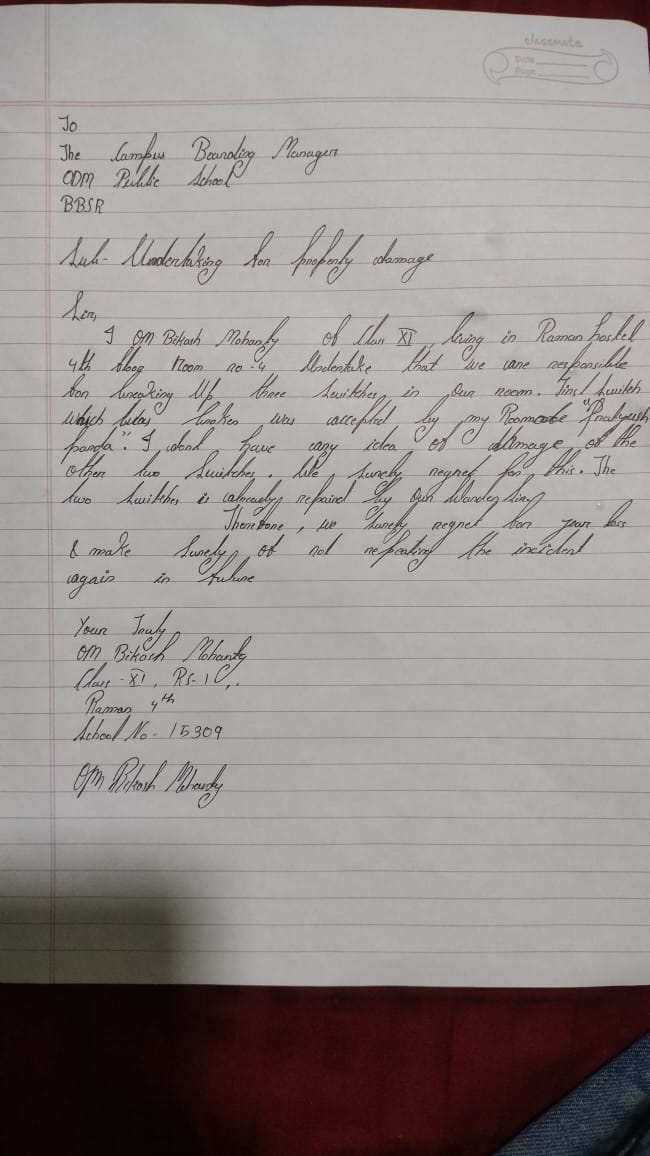 classmate
Date
Page
To
The Campus Boarding Manager
ODM Public School
BBSR
Sub- Undertaking for property damage
Sir,
I OM Bikash Mohanty of Class XI, living in Raman hostel
4th floor Room no-4 Undertake that we are responsible
for breaking Up three Switches in our room. First Switch
which was broken was accepted by my Roommate "Pratyush
panda". I dont have any idea of damage of the
other two Switches. We surely regret for this. The
two Switches is already repaired by our Warden Sir,
Therefore, we surely regret for your loss
& make surely of not repeating the incident
again in future
Your Truly
OM Bikash Mohanty
Class -XI, RS-1,
Raman 4th
School No - 15309
OM Bikash Mohanty